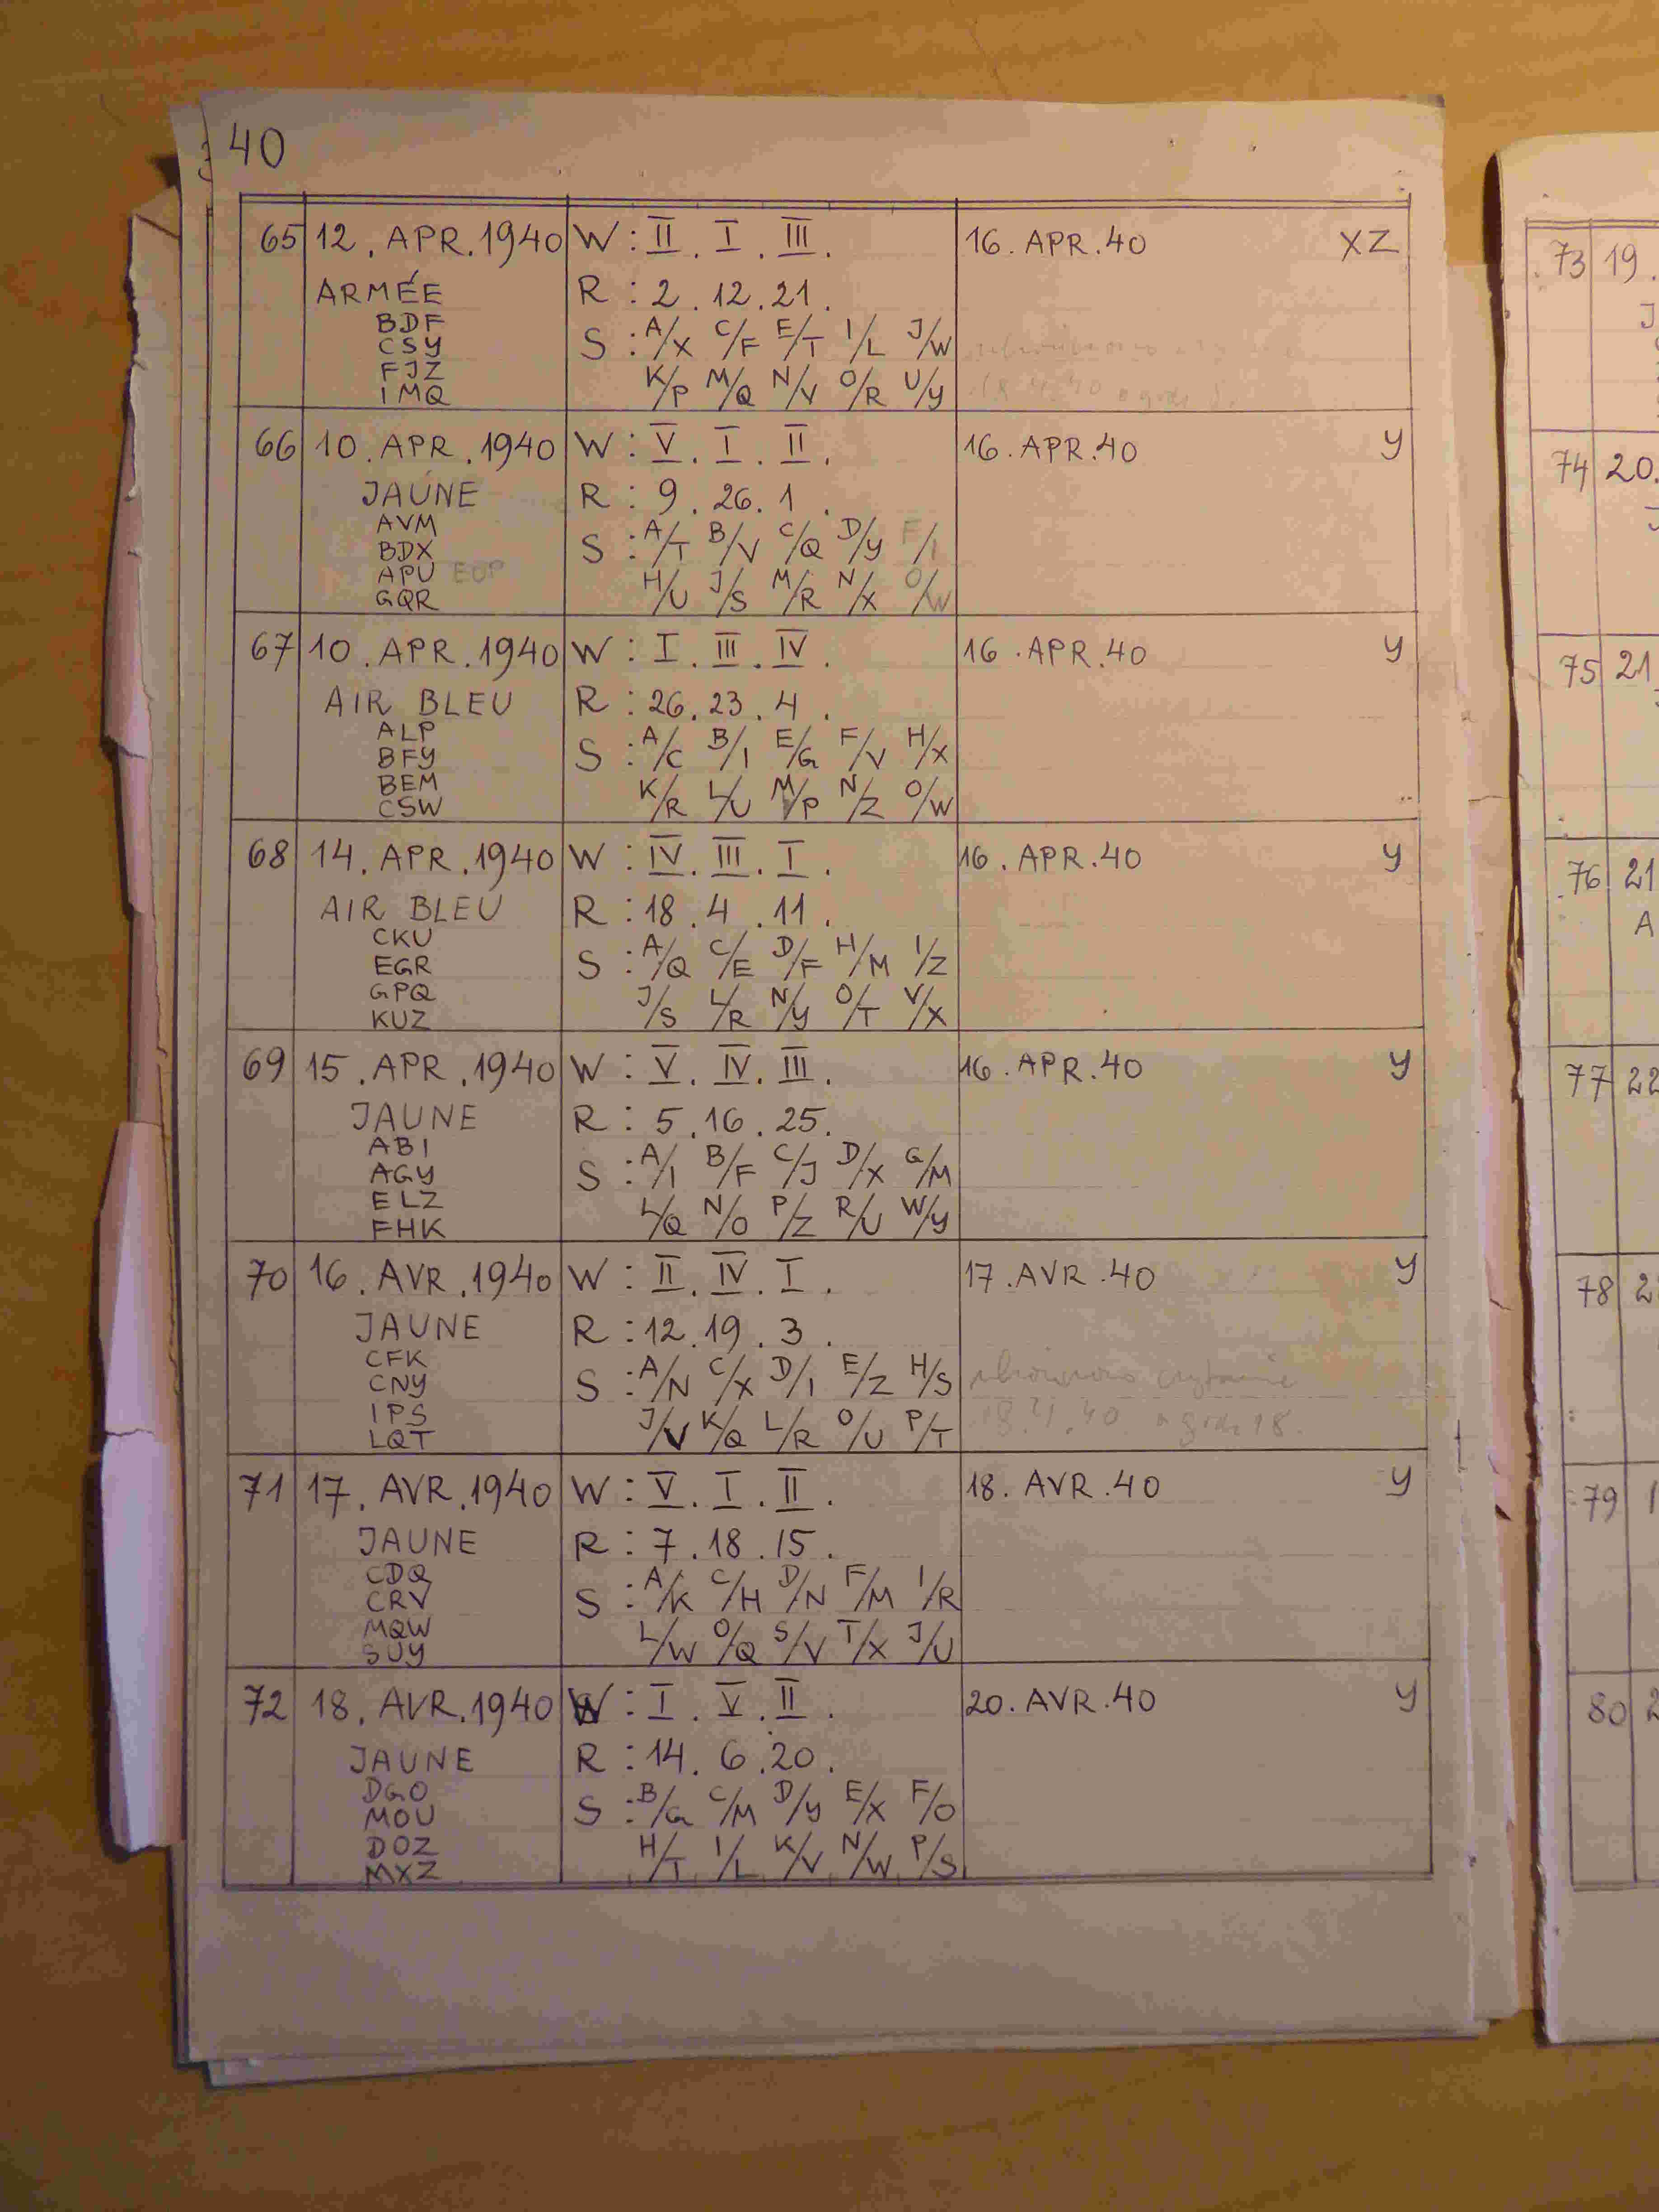 40
65 12. APR. 1940 W : II. I. III. 16. APR. 40 XZ
ARMÉE R : 2. 12. 21.
BDF
CSY S : A/X C/F E/T I/L J/W
FJZ
IMQ K/P M/Q N/V O/R U/Y
66 10. APR. 1940 W : V. I. II. 16. APR. 40 Y
JAUNE R : 9. 26. 1.
AVM
BDX S : A/T B/V C/Q D/Y F/I
APU EUP
GQR H/U J/S M/R N/X O/W
67 10. APR. 1940 W : I. III. IV. 16. APR. 40 Y
AIR BLEU R : 26. 23. 4.
ALP
BFY S : A/C B/I E/G F/V H/X
BEM
CSW K/R L/U M/P N/Z O/W
68 14. APR. 1940 W : IV. III. I. 16. APR. 40 Y
AIR BLEU R : 18. 4. 11.
CKU
EGR S : A/Q C/E D/F H/M I/Z
GPQ
KUZ J/S L/R N/Y O/T V/X
69 15. APR. 1940 W : V. IV. III. 16. APR. 40 Y
JAUNE R : 5. 16. 25.
ABI
AGY S : A/I B/F C/J D/X G/M
ELZ
FHK L/Q N/O P/Z R/U W/Y
70 16. AVR. 1940 W : II. IV. I. 17. AVR. 40 Y
JAUNE R : 12. 19. 3.
CFK
CNY S : A/N C/X D/I E/Z H/S
IPS
LQT J/V K/Q L/R O/U P/T
71 17. AVR. 1940 W : V. I. II. 18. AVR. 40 Y
JAUNE R : 7. 18. 15.
CDQ
CRV S : A/K C/H D/N F/M I/R
MQW
SUY L/W O/Q S/V T/X J/U
72 18. AVR. 1940 W : I. V. II. 20. AVR. 40 Y
JAUNE R : 14. 6. 20.
DGO
MOU S : B/G C/M D/Y E/X F/O
DOZ
MXZ H/T I/L K/V N/W P/S
73 19.
74 20.
75 21
76 21
A
77 22
78 2
79 1
80 2